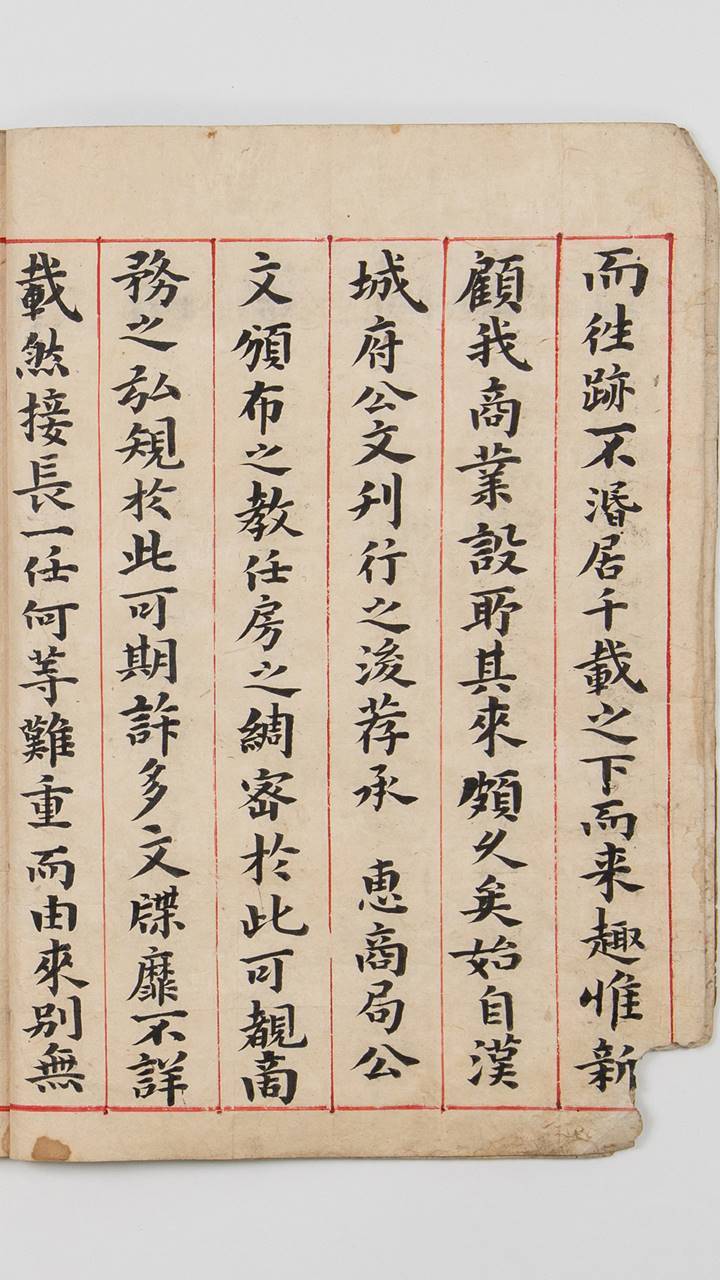 而徃跡不湣居千載之下而来趣惟新
顧我商業設所其來頗久矣始自漢
城府公文刋行之後荐承 惠商局公
文頒布之教任房之綢宻於此可覩商
務之弘規於此可期許多文牒靡不詳
載然接長一任何等難重而由來别無